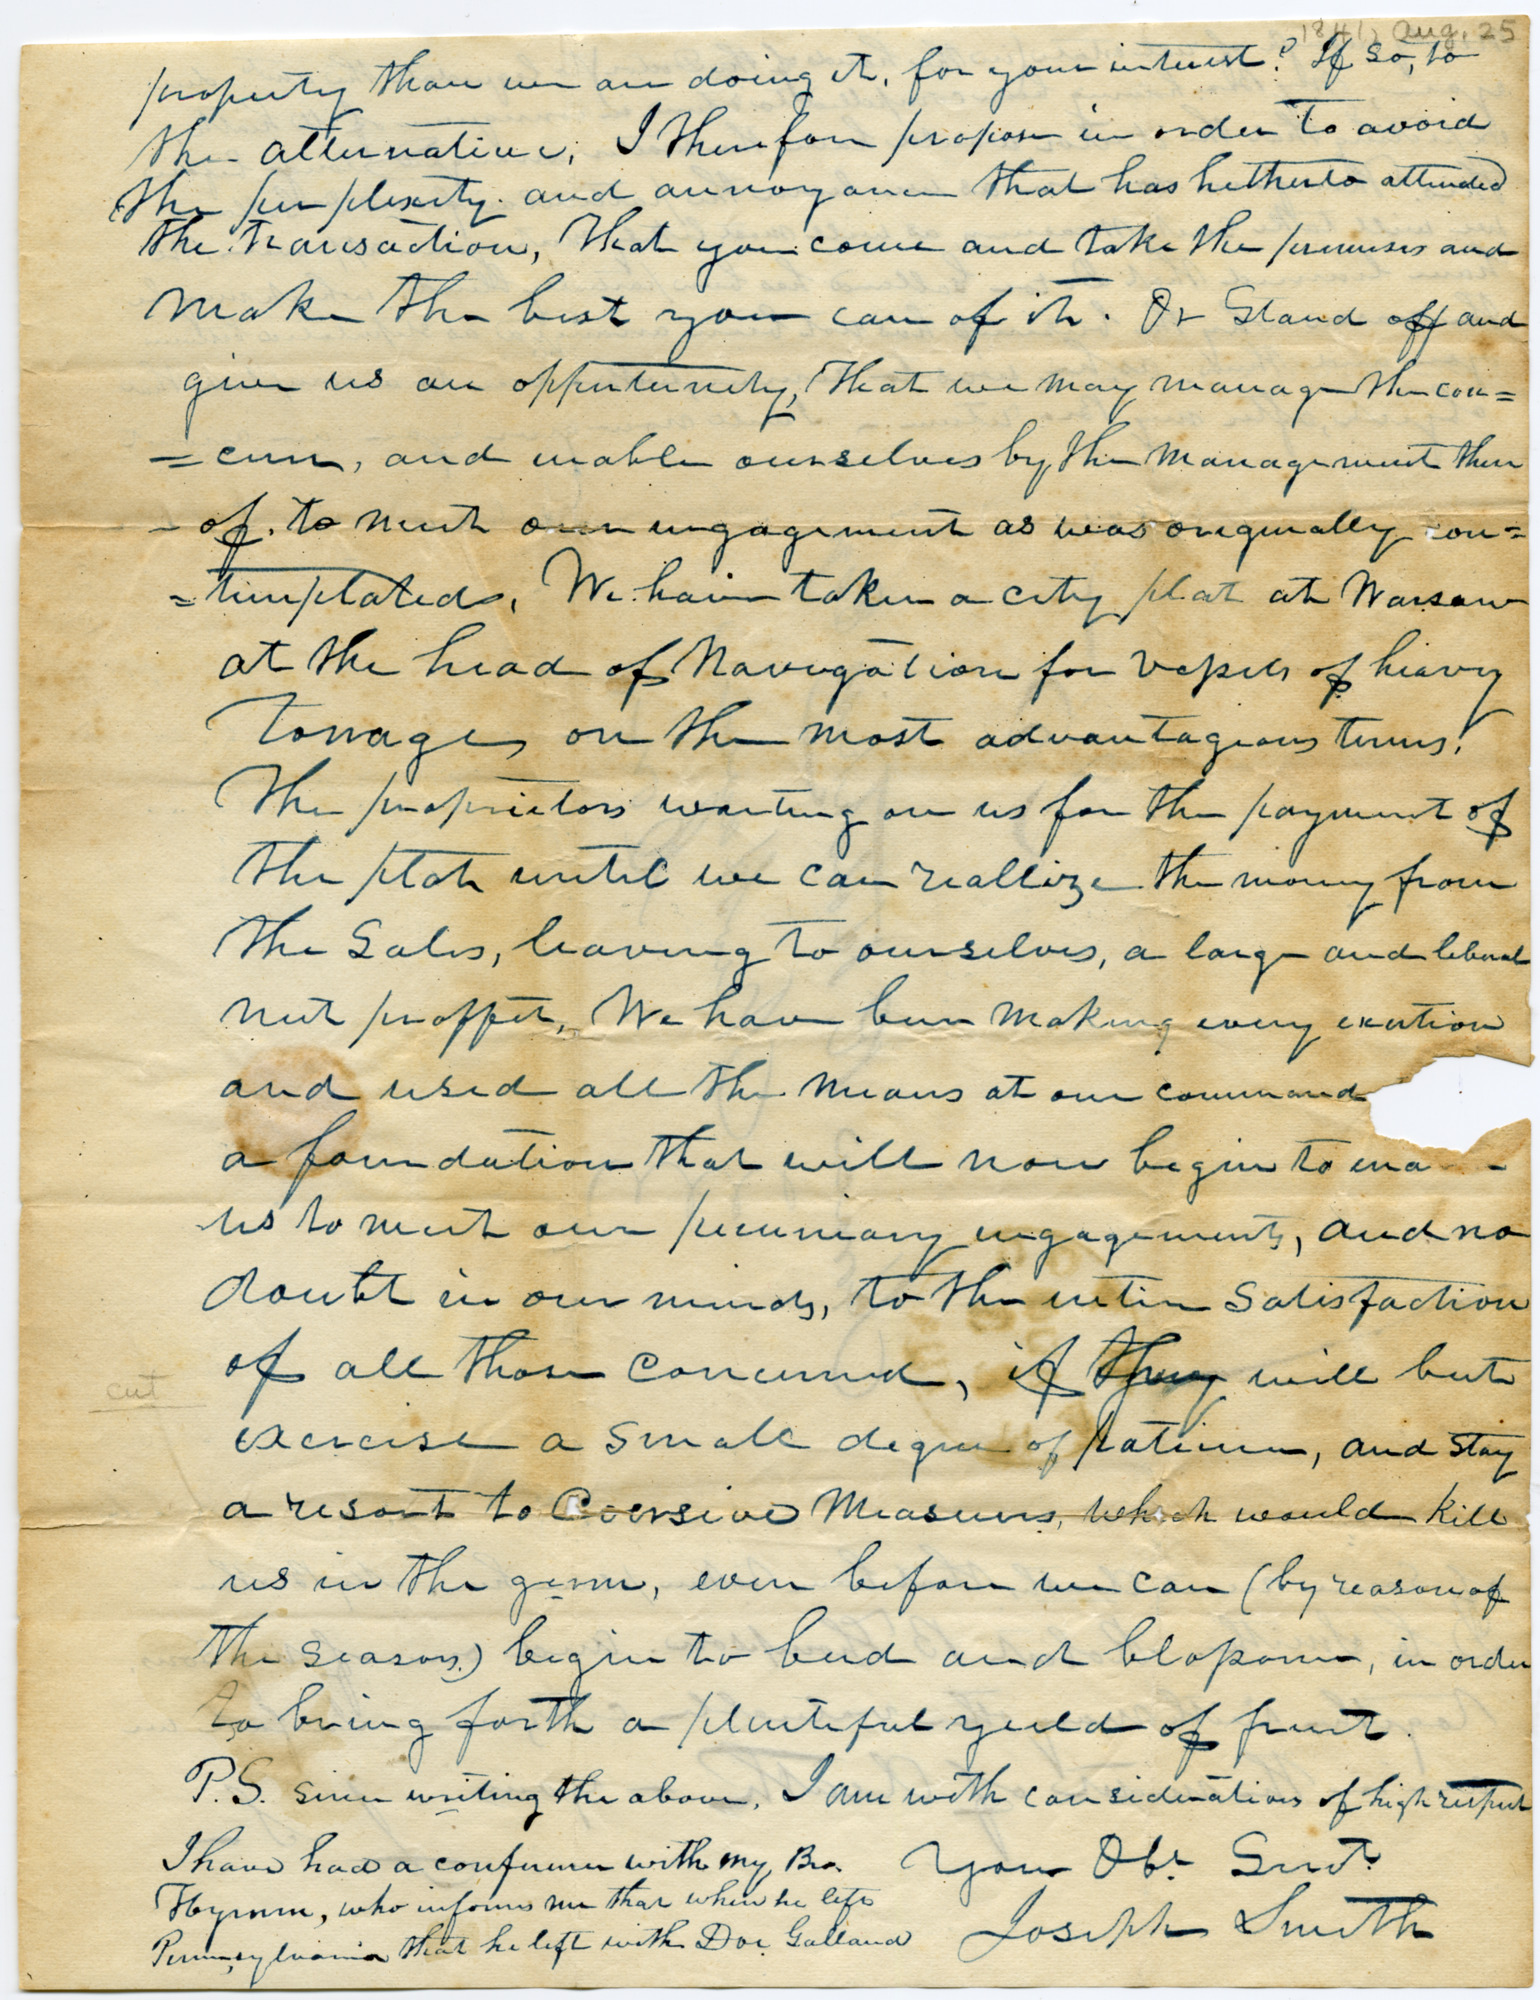 1841, Aug. 25
property than we are doing it, for your interest? If so, to
the alternative, I therefore propose in order to avoid
the perplexity and annoyance that has hitherto attended
the transaction, that you come and take the premises and
make the best you can of it. Or Stand off and
give us an oppertunity, that we may manage the con=
=cern, and enable ourselves by the management there
-of, to meet our engagement as was origenally con=
=templated. We have taken a city plat at Warsaw
at the head of Navigation for vessels of heavy
tonnage, on the most advantageous terms.
The proprietors waiting on us for the payment of
the plat until we can reallize the money from
the Sales, leaving to ourselves, a large and liberal
nett proffit, We have been making every exertion
and used all the means at our command
a foundation that will now begin to ena
us to meet our pecuniary engagements, and no
doubt in our minds, to the entire Satisfaction
of all those concerned, if they will but
cut
exercise a small degree of patience, and stay
a resort to Coersive Measures, which would kill
us in the germ, even before we can (by reason of
the season) begin to bud and blossom, in order
to bring forth a plentiful yeild of fruit.
P.S. since writing the above. I am with considerations of high respect
I have had a conference with my Bro. Your Obt. Servt.
Hyrum, who informs me that when he left
Pennsylvania that he left with Doc. Galland Joseph Smith